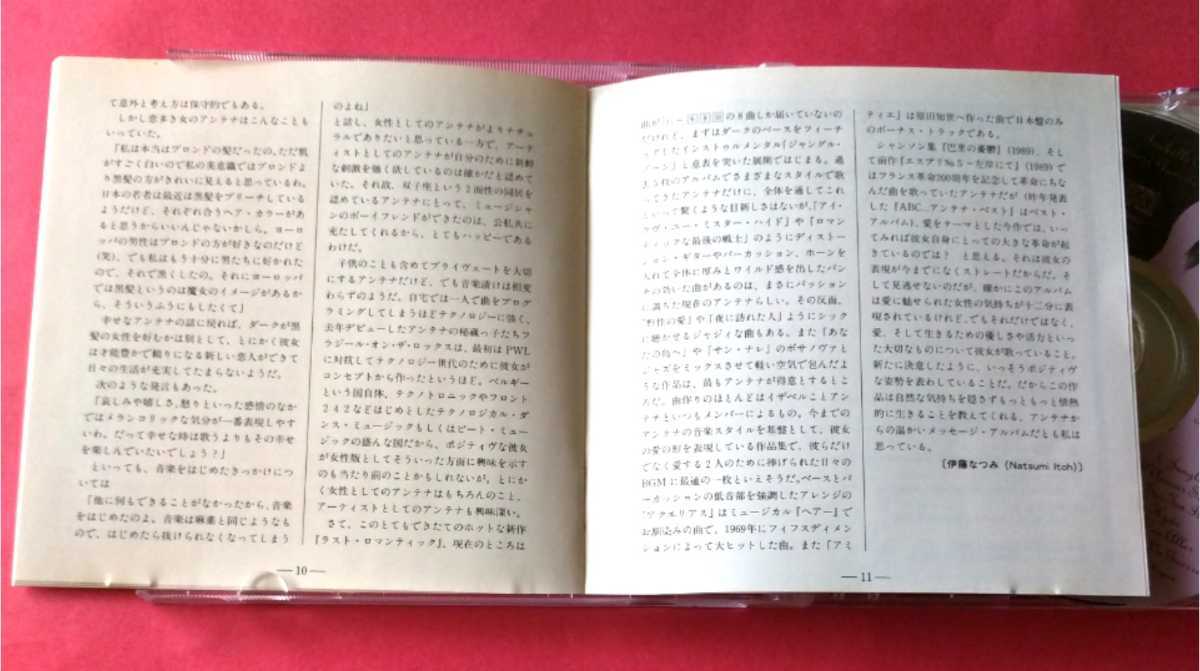 て意外と考え方は保守的でもある。
しかし恋多き女のアンテナはこんなことも
いっていた。
「私は本当はブロンドの髪だったの。ただ肌
がすごく白いので私の美意識ではブロンドよ
り黒髪の方がきれいに見えると思っているわ。
日本の若者は最近は黒髪をブリーチしている
ようだけど、それぞれ合うヘア・カラーがあ
ると思うからいいんじゃないかしら。ヨーロ
ッパの男性はブロンドの方が好きなのだけど
(笑)、でも私はもう十分に男たちに好かれた
ので、それで黒くしたの。それにヨーロッパ
では黒髪というのは魔女のイメージがあるか
ら、そういうふうにもしたくて」
幸せなアンテナの話に戻れば、ダークが黒
髪の女性を好むかは別として、とにかく彼女
は才能豊かで頼りになる新しい恋人ができて
日々の生活が充実してたまらないようだ。
次のような発言もあった。
「哀しみや嬉しさ、怒りといった感情のなか
ではメランコリックな気分が一番表現しやす
いわ。だって幸せな時は歌うよりもその幸せ
を楽しんでいたいでしょう?」
といっても、音楽をはじめたきっかけにつ
いては
「他に何もできることがなかったから、音楽
をはじめたのよ。音楽は麻薬と同じようなも
ので、はじめたら抜けられなくなってしまう
のよね」
と話し、女性としてのアンテナがよりナチュ
ラルでありたいと思っている一方で、アーテ
ィストとしてのアンテナが自分のために新鮮
な刺激を強く欲しているのは確かだと認めて
いた。それ故、双子座という2面性の同居を
認めているアンテナにとって、ミュージシャ
ンのボーイフレンドができたのは、公私共に
充たしてくれるから、とてもハッピーである
わけだ。
子供のことも含めてプライヴェートを大切
にするアンテナだけど、でも音楽漬けは相変
わらずのようだ。自宅では一人で曲をプログ
ラミングしてしまうほどテクノロジーに強く、
去年デビューしたアンテナの秘蔵っ子たちフ
ラジール・オン・ザ・ロックスは、最初はPWL
に対抗してテクノロジー世代のために彼女が
コンセプトから作ったというほど。ベルギー
という国自体、テクノトロニックやフロント
242などはじめとしたテクノロジカル・ダ
ンス・ミュージックもしくはビート・ミュー
ジックの盛んな国だから、ポジティヴな彼女
が女性版としてそういった方面に興味を示す
のも当たり前のことかもしれないが。とにか
く女性としてのアンテナはもちろんのこと、
アーティストとしてのアンテナも興味深い。
さて、このとてもできたてのホットな新作
『ラスト・ロマンティック』、現在のところは
―10―
の8曲しか届いていないの
だけれど、まずはダークのベースをフィーチ
ュアしたインストゥルメンタル「ジャングル・
ゾーン」と意表を突いた展開ではじまる。過
去5枚のアルバムでさまざまなスタイルで歌
ってきたアンテナだけに、全体を通してこれ
といって驚くような目新しさはないが、「アイ・
ラヴ・ユー・ミスター・ハイド」や「ロマン
ティックな最後の戦士」のようにディストー
ション・ギターやパーカッション、ホーンを
入れて全体に厚みとワイルド感を出したパン
チの効いた曲があるのは、まさにパッション
に満ちた現在のアンテナらしい。その反面、
「野性の愛」や「夜に訪れた人」ようにシック
に聴かせるジャジィな曲もある。また「あな
たの島へ」や「サン・ナレ」のボサノヴァと
ジャズをミックスさせて軽い空気で包んだよ
うな作品は、最もアンテナが得意とするとこ
ろだ。曲作りのほとんどはイザベルことアン
テナといつもメンバーによるもの。今までの
アンテナの音楽スタイルを基盤として、彼女
の愛の形を表現している作品集で、彼らだけ
でなく愛する2人のために捧げられた日々の
BGMに最適の一枚といえそうだ。ベースとパ
ーカッションの低音部を強調したアレンジの
「アクエリアス」はミュージカル『ヘアー』で
お馴染みの曲で、1969年にフィフスディメン
ションによって大ヒットした曲。また「アミ
ティエ」は原田知世へ作った曲で日本盤のみ
のボーナス・トラックである。
シャンソン集『巴里の憂鬱』(1989)、そし
て前作『エスプリNo.5〜左岸にて』(1989)で
はフランス革命200周年を記念して革命にちな
んだ曲を歌っていたアンテナだが(昨年発表
した『ABC…アンテナ・ベスト』はベスト・
アルバム)、愛をテーマとした今作では、いっ
てみれば彼女自身にとっての大きな革命が起
きているのでは? と思える。それは彼女の
表現が今までになくストレートだからだ。そ
して見逃せないのだが、確かにこのアルバム
は愛に魅せられた女性の気持ちが十二分に表
現されているけれど、でもそれだけではなく、
愛、そして生きるための優しさや活力といっ
た大切なものについて彼女が歌っていること。
新たに決意したように、いっそうポジティヴ
な姿勢を表わしていることだ。だからこの作
品は自然な気持ちを隠さずもっともっと情熱
的に生きることを教えてくれる、アンテナか
らの温かいメッセージ・アルバムだとも私は
思っている。
〔伊藤なつみ (Natsumi Itoh)〕
―11―